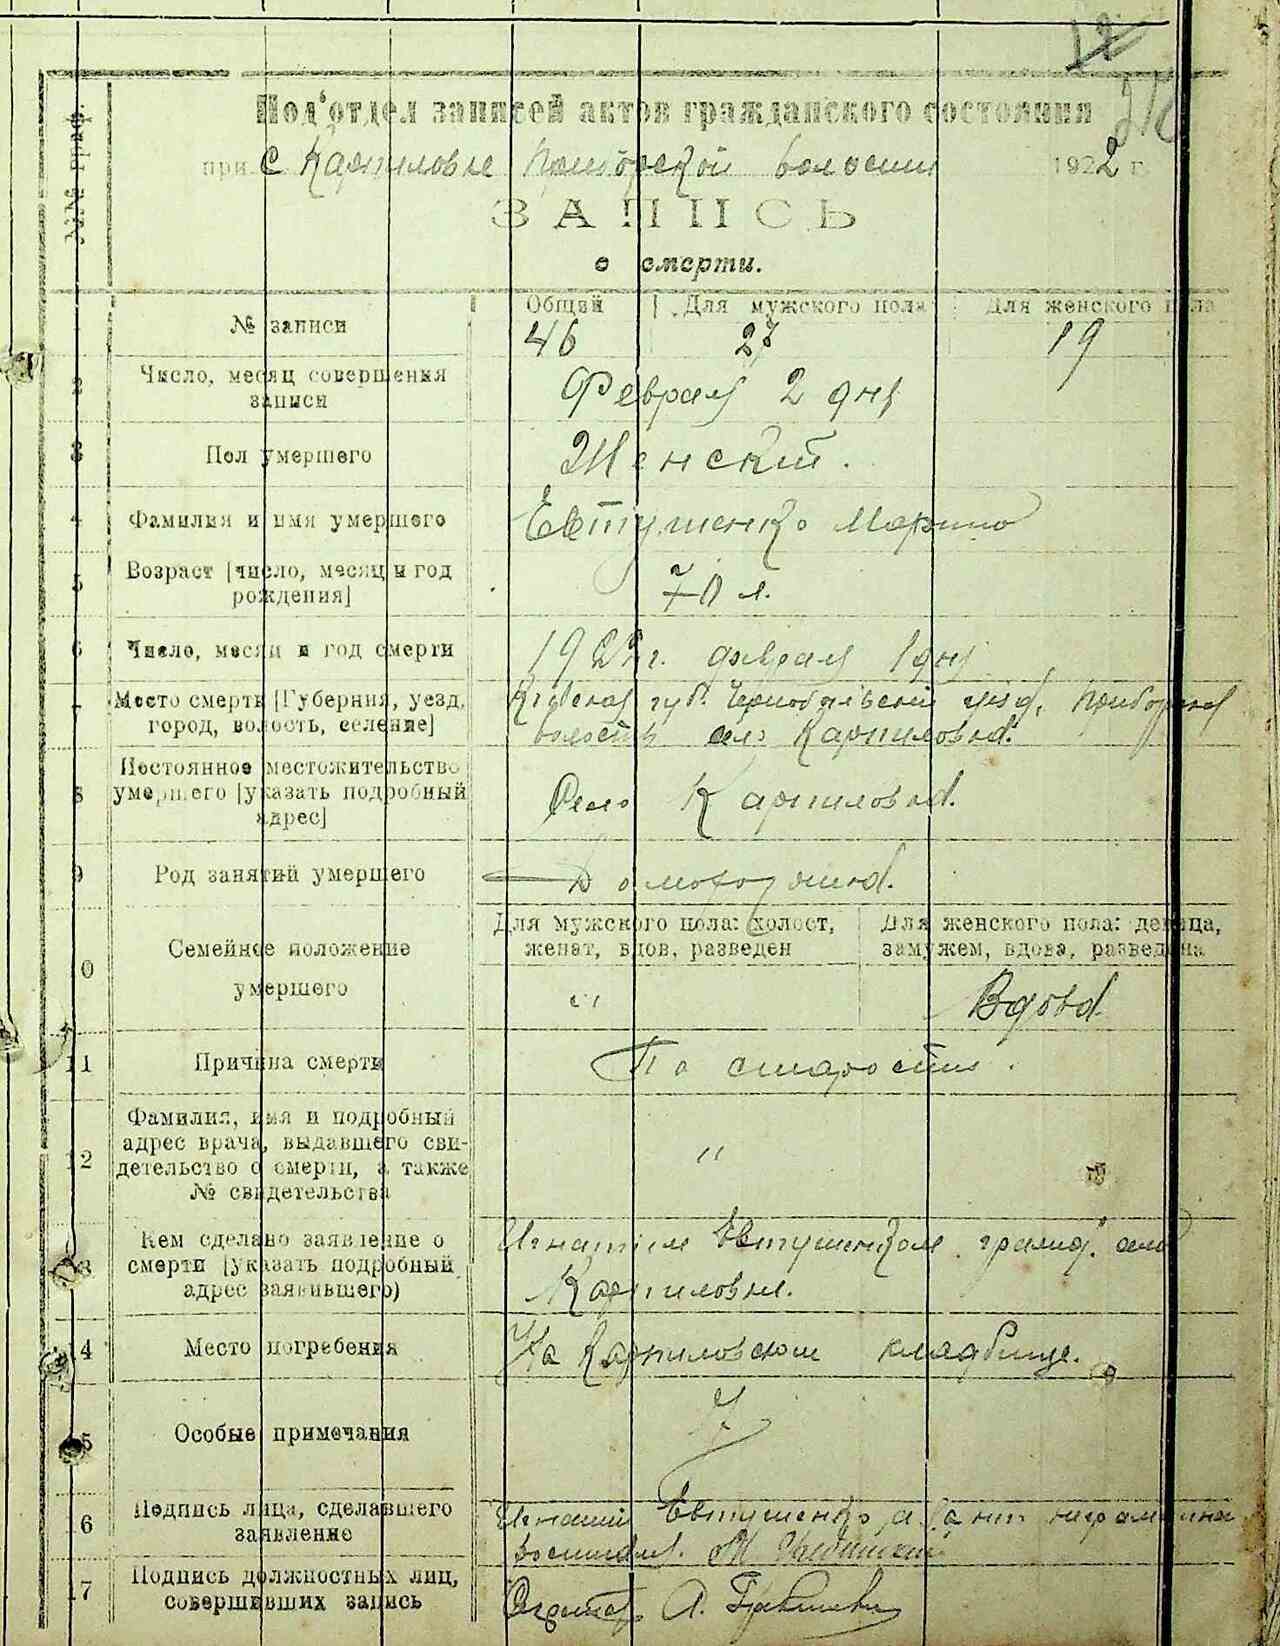 12
№№ граф.
Под'отдел записей актов гражданского состояния
при с Карпиловке Приборской волости 1922 г.
ЗАПИСЬ
о смерти.
1 № записи Общий Для мужского пола Для женского пола
46 27 19
2 Число, месяц совершения записи
Февраля 2 дня
3 Пол умершего Женский.
4 Фамилия и имя умершего Евтушенко Марина
5 Возраст [число, месяц и год рождения] 70 л.
6 Число, месяц и год смерти 1922 г. февраля 1 дня
7 Место смерти [Губерния, уезд, город, волость, селение]
Киевская губ. Чернобыльский уезд, Приборская
волость село Карпиловка.
8 Постоянное местожительство умершего [указать подробный адрес]
Село Карпиловка.
9 Род занятий умершего Домохозяйка.
10 Семейное положение умершего
Для мужского пола: холост, женат, вдов, разведен
Для женского пола: девица, замужем, вдова, разведена
" Вдова
11 Причина смерти По старости.
12 Фамилия, имя и подробный адрес врача, выдавшего свидетельство о смерти, а также № свидетельства
"
13 Кем сделано заявление о смерти [указать подробный адрес заявившего)
Игнатием Евтушенком гражд. села
Карпиловки.
14 Место погребения На Карпиловском кладбище.
15 Особые примечания
16 Подпись лица, сделавшего заявление
Игнатий Евтушенко, а за него неграмотна
17 Подпись должностных лиц, совершивших запись
Секретарь А.